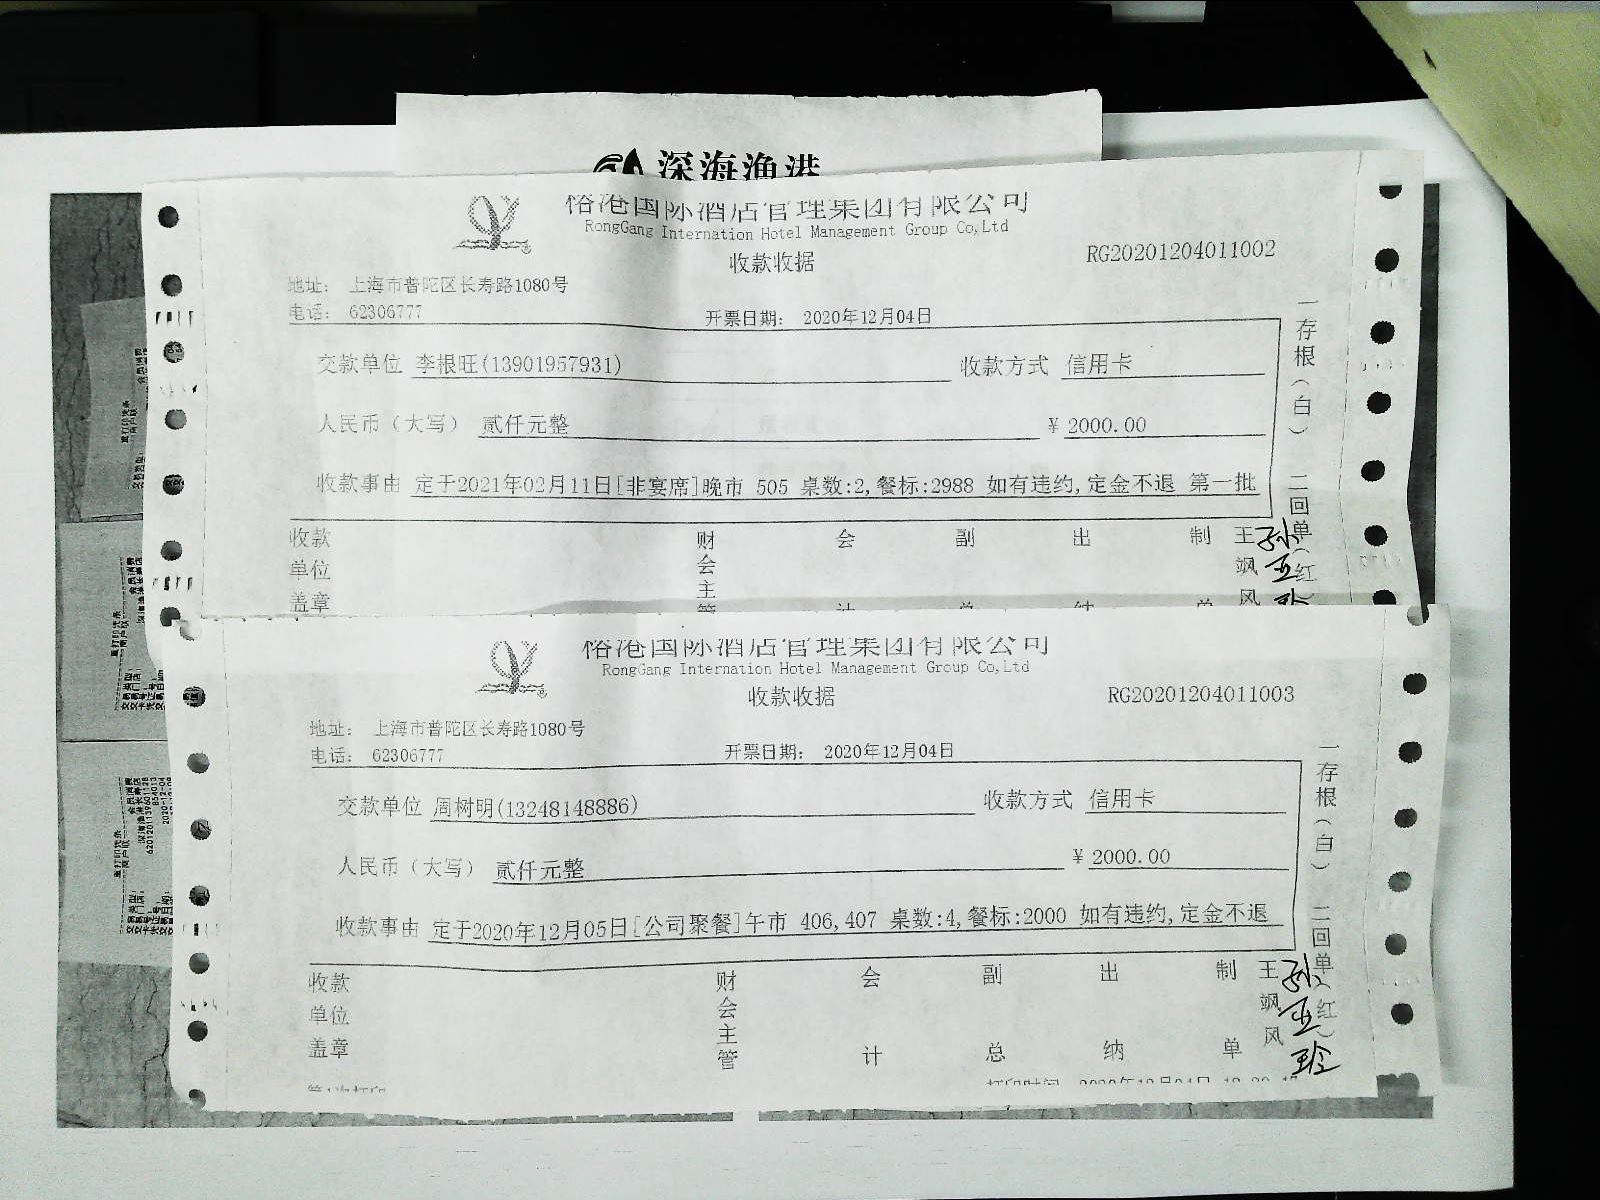 深海渔港
榕港国际酒店管理集团有限公司
RongGang Internation Hotel Management Group Co,Ltd
收款收据
RG20201204011002
地址： 上海市普陀区长寿路1080号
电话： 62306777
开票日期： 2020年12月04日
交款单位 李根旺(13901957931) 收款方式 信用卡
人民币（大写） 贰仟元整 ¥ 2000.00
收款事由 定于2021年02月11日[非宴席]晚市 505 桌数:2,餐标:2988 如有违约,定金不退 第一批
收款单位盖章 财会主管 会计 副总 出纳 制单 王飒风
孙亚玲
一存根（白） 二回单（红
榕港国际酒店管理集团有限公司
RongGang Internation Hotel Management Group Co,Ltd
收款收据
RG20201204011003
地址： 上海市普陀区长寿路1080号
电话： 62306777
开票日期： 2020年12月04日
交款单位 周树明(13248148886) 收款方式 信用卡
人民币（大写） 贰仟元整 ¥ 2000.00
收款事由 定于2020年12月05日[公司聚餐]午市 406,407 桌数:4,餐标:2000 如有违约,定金不退
收款单位盖章 财会主管 会计 副总 出纳 制单 王飒风
孙亚玲
一存根（白） 二回单（红）
第1次打印 打印时间 2020年12月04日